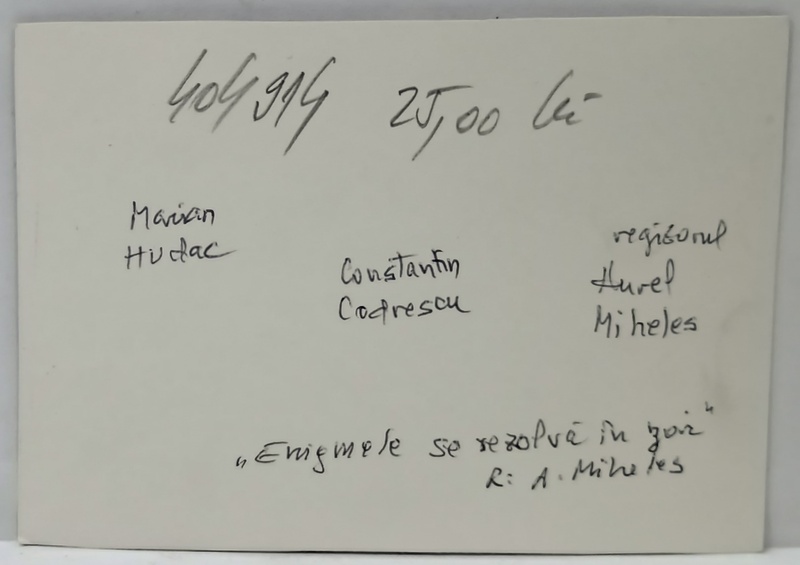 404914 25,00 lei
Marian
Hudac
Constantin
Codrescu
regisorul
Aurel
Miheles
„Enigmele se rezolvă în zori”
R: A. Miheles